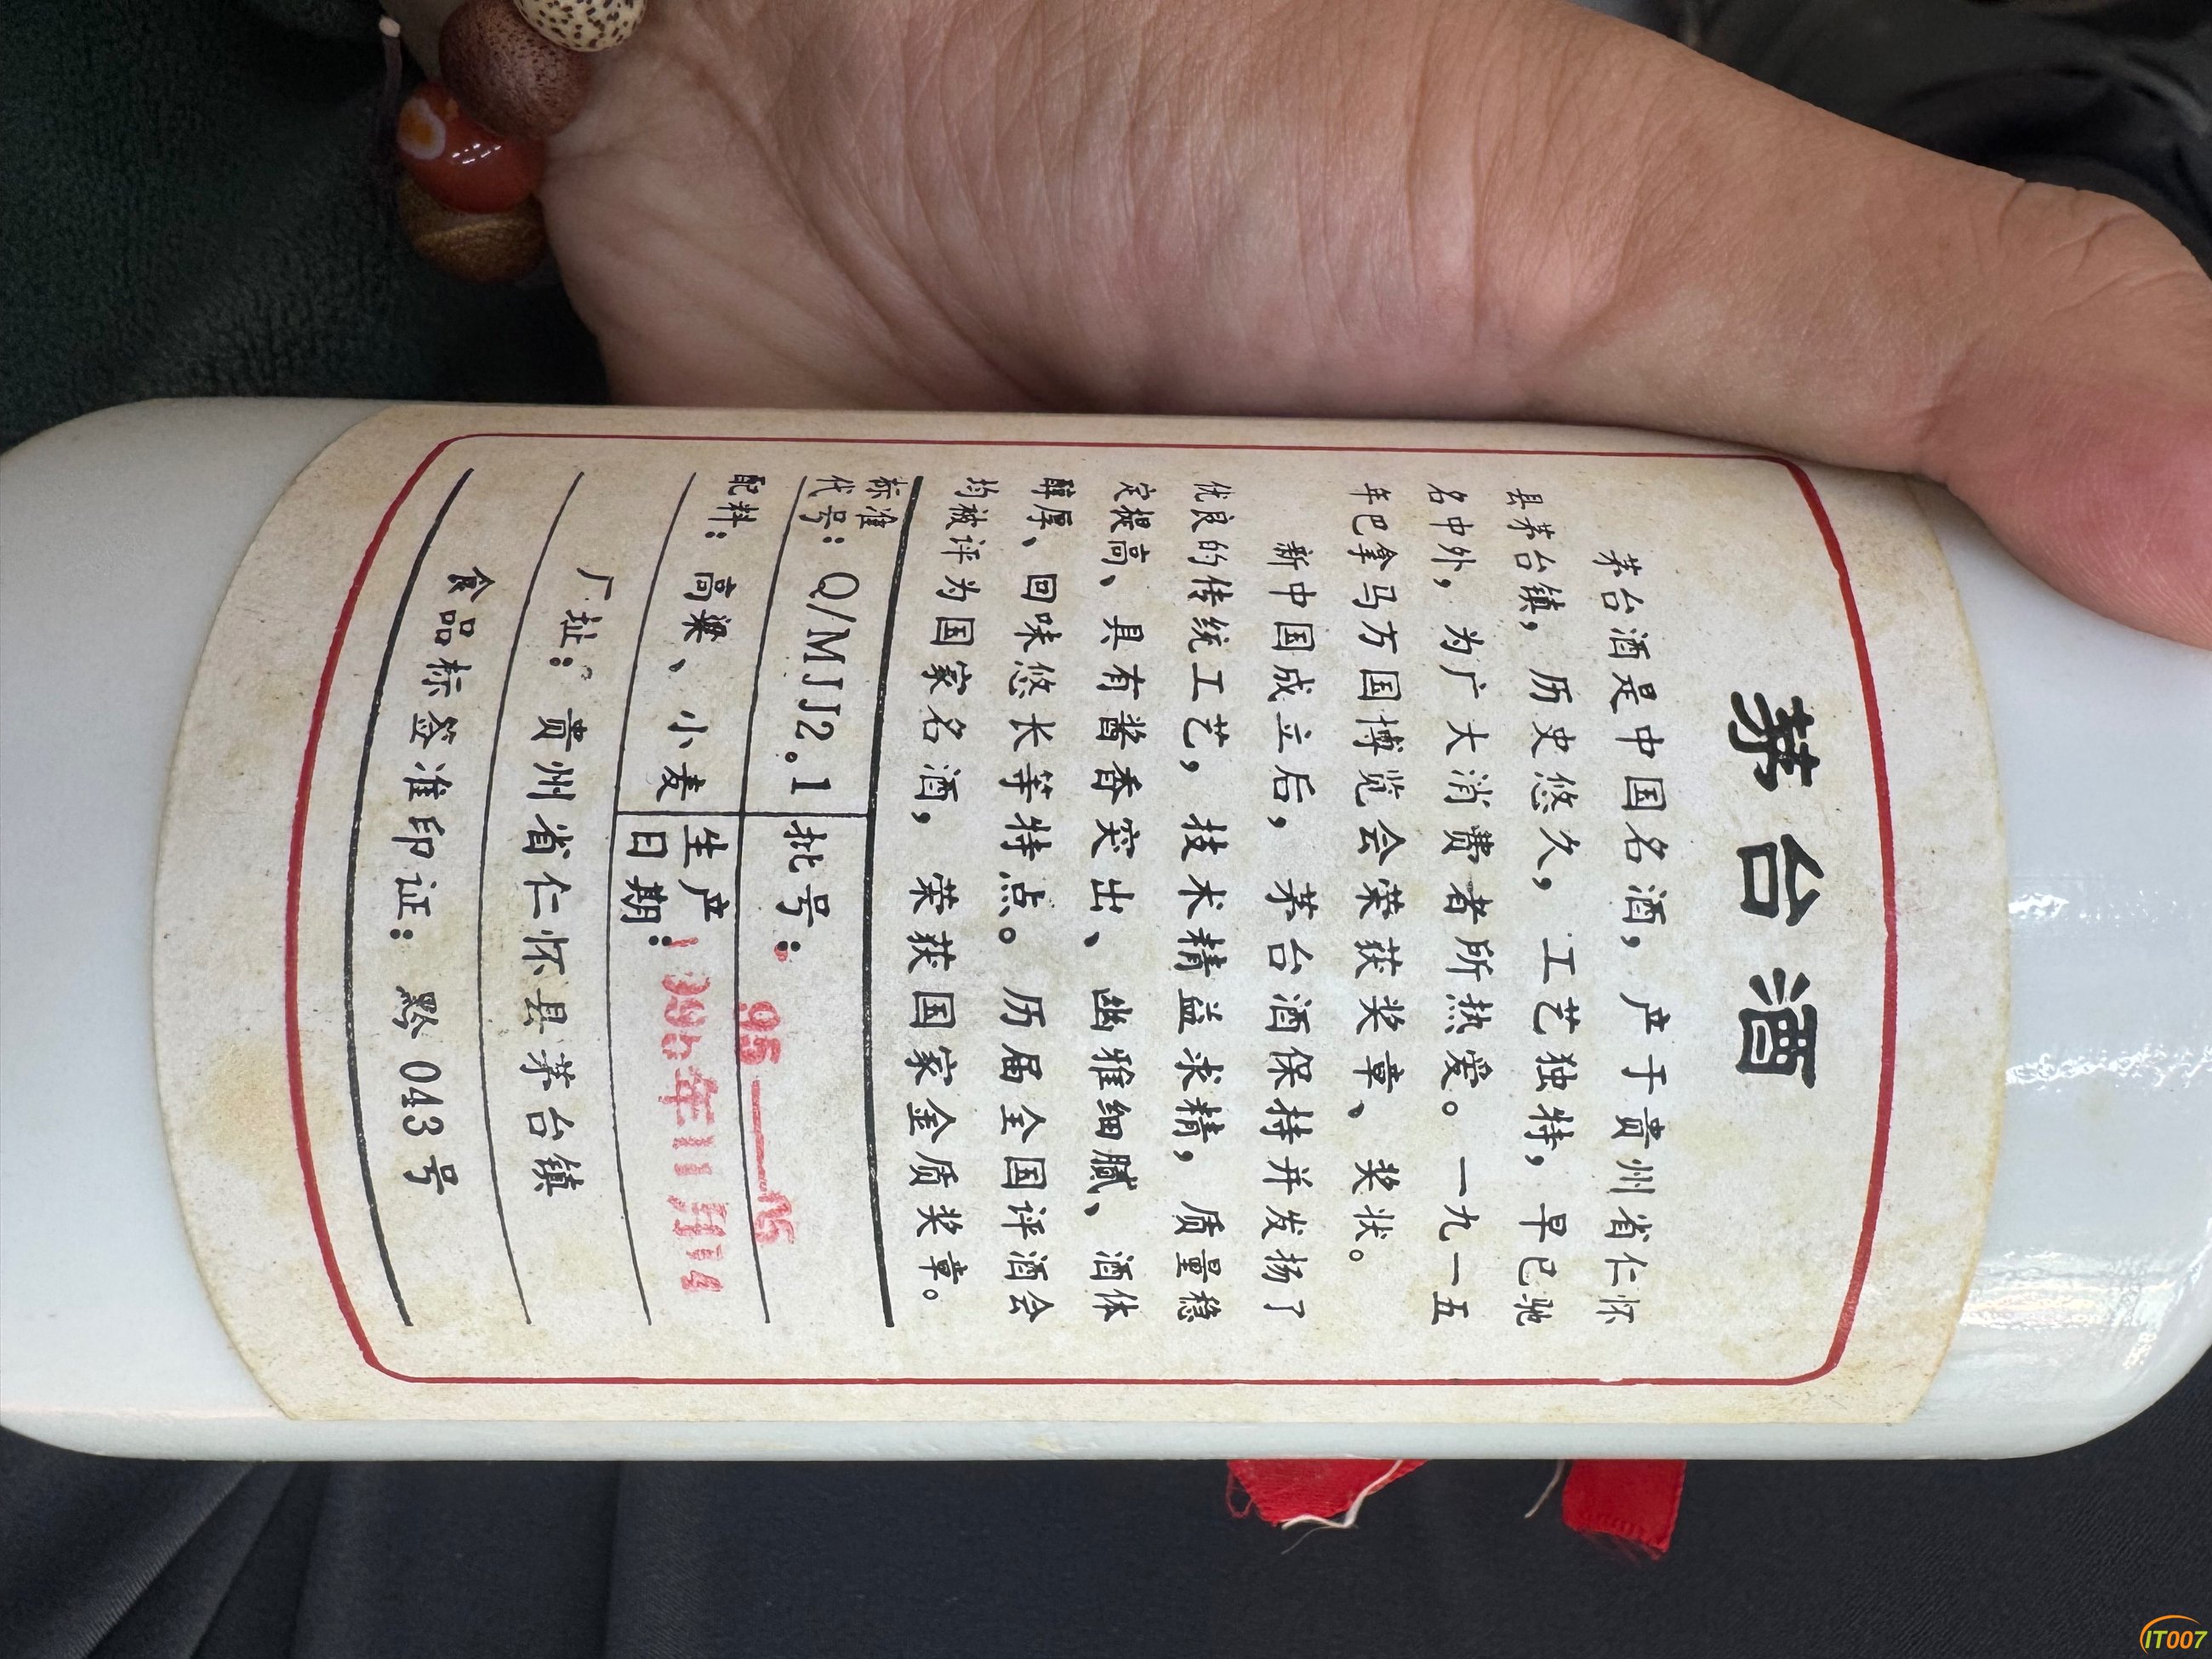 茅台酒
茅台酒是中国名酒，产于贵州省仁怀
县茅台镇，历史悠久，工艺独特，早已驰
名中外，为广大消费者所热爱。一九一五
年巴拿马万国博览会荣获奖章、奖状。
新中国成立后，茅台酒保持并发扬了
优良的传统工艺，技术精益求精，质量稳
定提高、具有酱香突出、幽雅细腻、酒体
醇厚、回味悠长等特点。历届全国评酒会
均被评为国家名酒，荣获国家金质奖章。
标准代号：Q/MJJ2.1 批号：95—15
配料：高粱、小麦 生产日期：1995年11月14
厂址：贵州省仁怀县茅台镇
食品标签准印证：黔043号
IT007